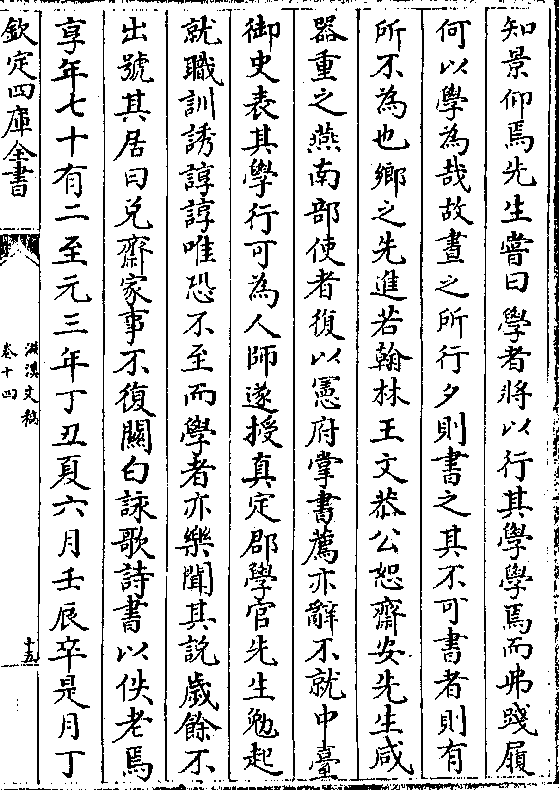 知景仰焉先生嘗曰學者將以行其學學焉而弗踐履
何以學為哉故晝之所行夕則書之其不可書者則有
所不為也鄉之先進若翰林王文恭公恕齋安先生咸
器重之燕南部使者復以憲府掌書薦亦辭不就中臺
御史表其學行可為人師遂授真定郡學官先生勉起
就職訓誘諄諄唯恐不至而學者亦樂聞其説歲餘不
出號其居曰兌齋家事不復關白詠歌詩書以佚老焉
享年七十有二至元三年丁丑夏六月壬辰卒是月丁
欽定四庫全書
滋溪文稿
卷十四
十五